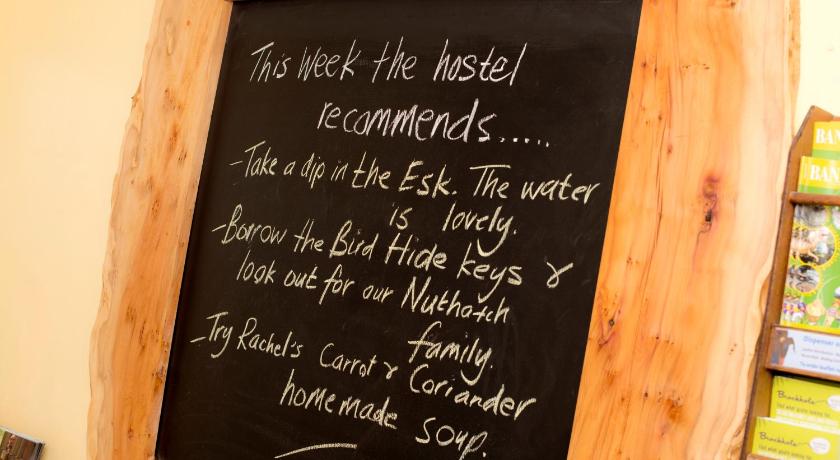 This Week the hostel
recommends.....
-Take a dip in the Esk. The water
is lovely.
-Borrow the Bird Hide keys &
look out for our Nuthatch
family.
-Try Rachel's Carrot & Coriander
homemade soup.
BAN
BAN
Dispenser
Brockhole
Brockhole